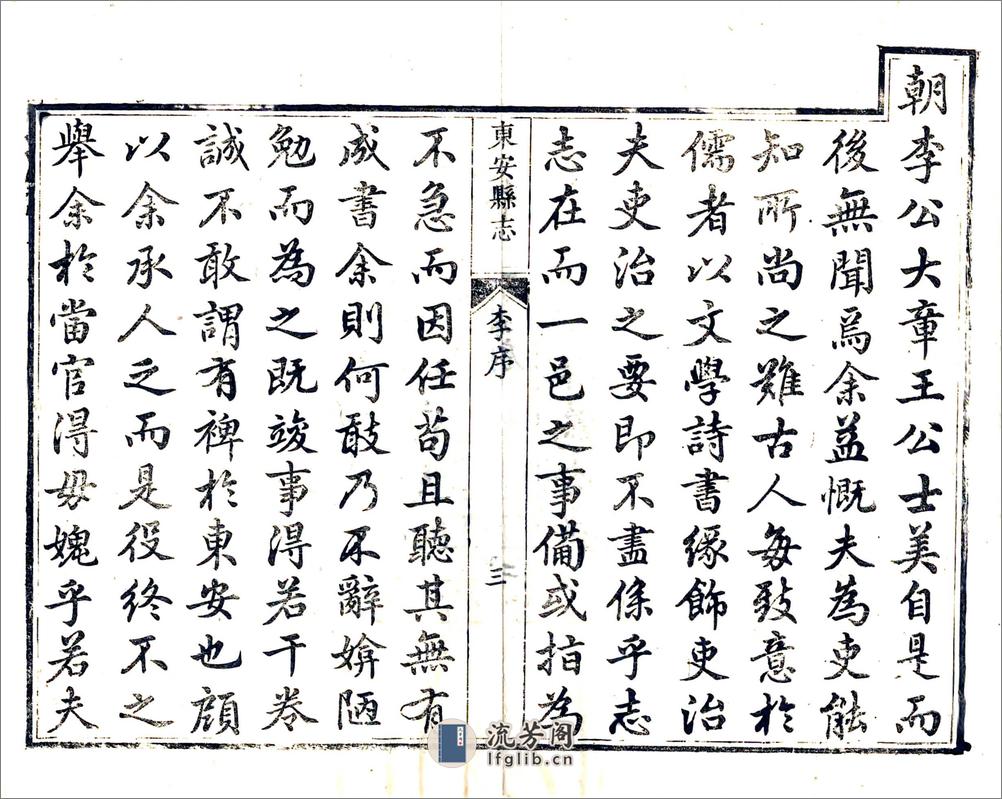 朝李公大章王公士美自是而
後無聞焉余益慨夫為吏能
知所尚之難古人每致意於
儒者以文學詩書緣飾吏治
夫吏治之要即不盡係乎志
志在而一邑之事備或指為
東安縣志 李序 三
不急而因任苟且聽其無有
成書余則何敢乃不辭媕陋
勉而為之既竣事得若干卷
誠不敢謂有裨於東安也顧
以余承人之而是役終不之
舉余於當官得毋媿乎若夫
流芳阁
lfglib.cn